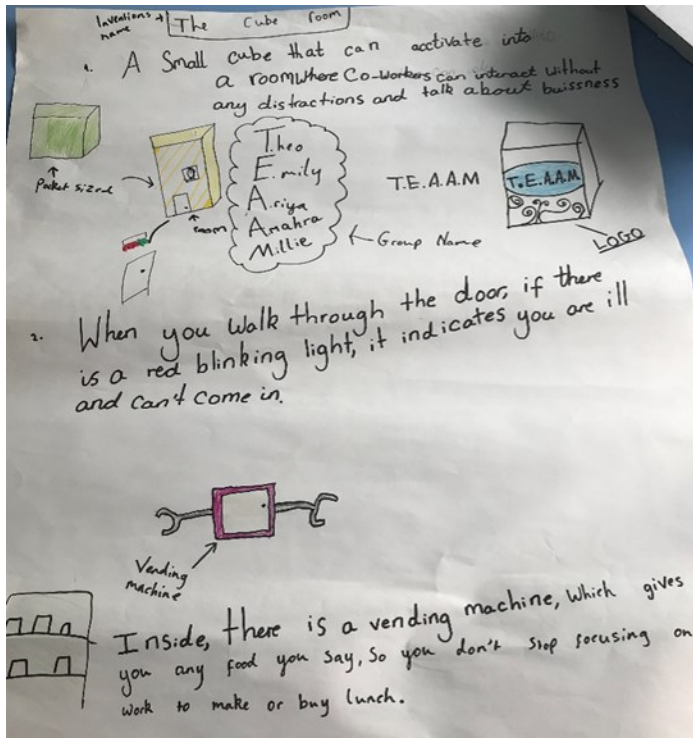 Inventions name
The Cube room
1. A Small cube that can acctivate into
a room where Co-workers can interact without
any distractions and talk about buissness
Pocket sized
room
T.heo
E.mily
A.riya
Amahra
Millie
Group Name
T.E.A.A.M
T.E.A.A.M
LOGO
2. When you walk through the door, if there
is a red blinking light, it indicates you are ill
and can't come in.
Vending
machine
Inside, there is a vending machine, which gives
you any food you say, So you don't stop focusing on
work to make or buy lunch.